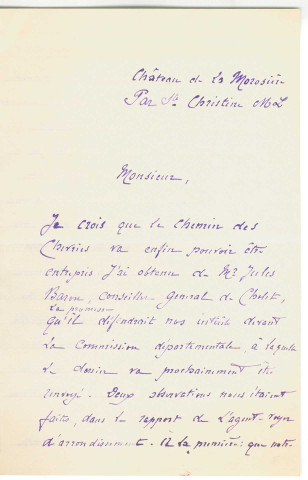 Château de la Morosière
Par Ste Christine M&L
Monsieur,
Je crois que le chemin des
va enfin pouvoir être
entrepris. J'ai obtenu de Mr Jules
Baron, Conseiller général de Cholet,
la promesse
qu'il défendrait nos intérêts devant
la Commission départementale, à laquelle
le dossier va prochainement être
renvoyé. Deux observations nous étaient
faites, dans le rapport de l'agent-voyer
d'arrondissement. à la première: que notre